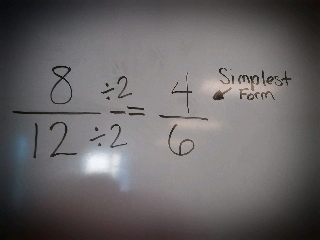 8 ÷2 = 4
12 ÷2 6
Simplest
Form